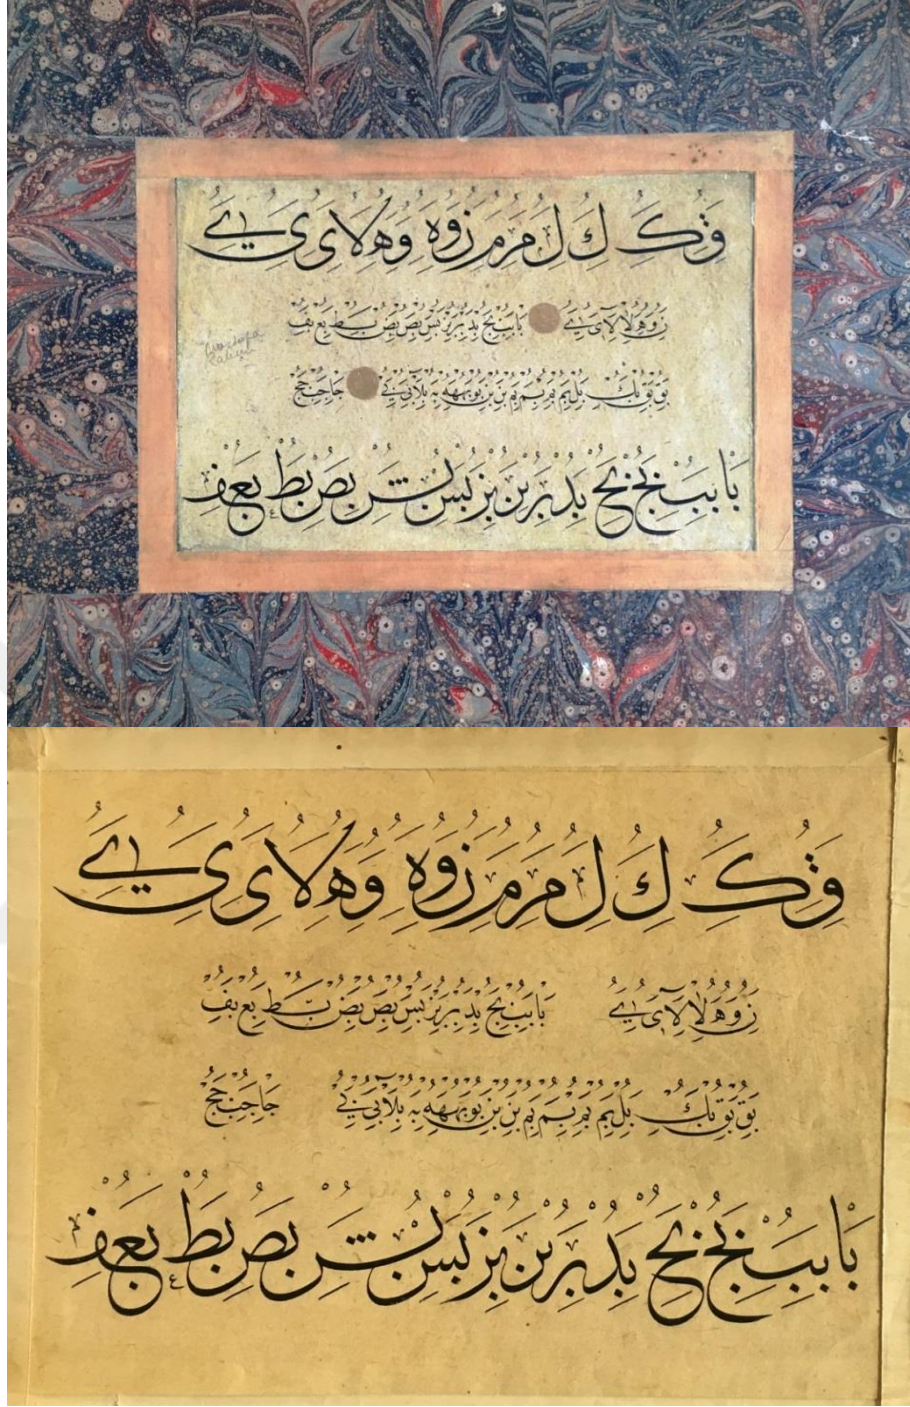 ق ك ك ل ل م م ن و ه و ه لا ى ى ے
ن و ه لا لا ى ے با بب بج بد بر بز بس بص بض بط بع بف
بق بق بك بل بم بم بم بم بن بن بو بهه به بلا بى بے جا جب جج
با بب بج بح بد بر بن بز بس بش بص بط بع ف
ق ك ك ل ل م م ن و ه و ه لا ى ى ے
ن و ه لا لا ى ے با بب بج بد بر بز بس بص بض بط بع بف
بق بق بك بل بم بم بم بم بن بن بو بهه به بلا بى بے جا جب جج
با بب بج بح بد بر بن بز بس بش بص بط بع ف